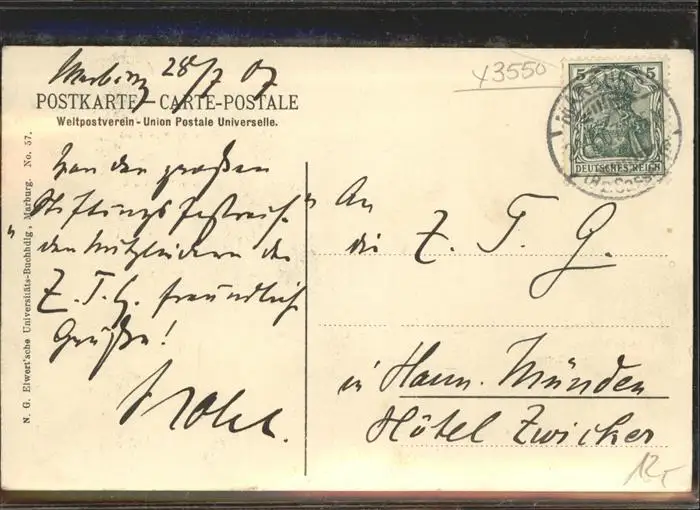 Marburg 28/7 07
x3550
POSTKARTE – CARTE-POSTALE
Weltpostverein - Union Postale Universelle.
5 5
DEUTSCHES REICH
MARBURG
N. G. Elwert'sche Universitäts-Buchhdlg., Marburg. No. 57.
Von den großen
Stiftungsfest
den Mitgliedern der
Z. T. G. freundlich
Grüße!
An
die Z. T. G.
in Hann. Münden
Hôtel Zwicker
12,-